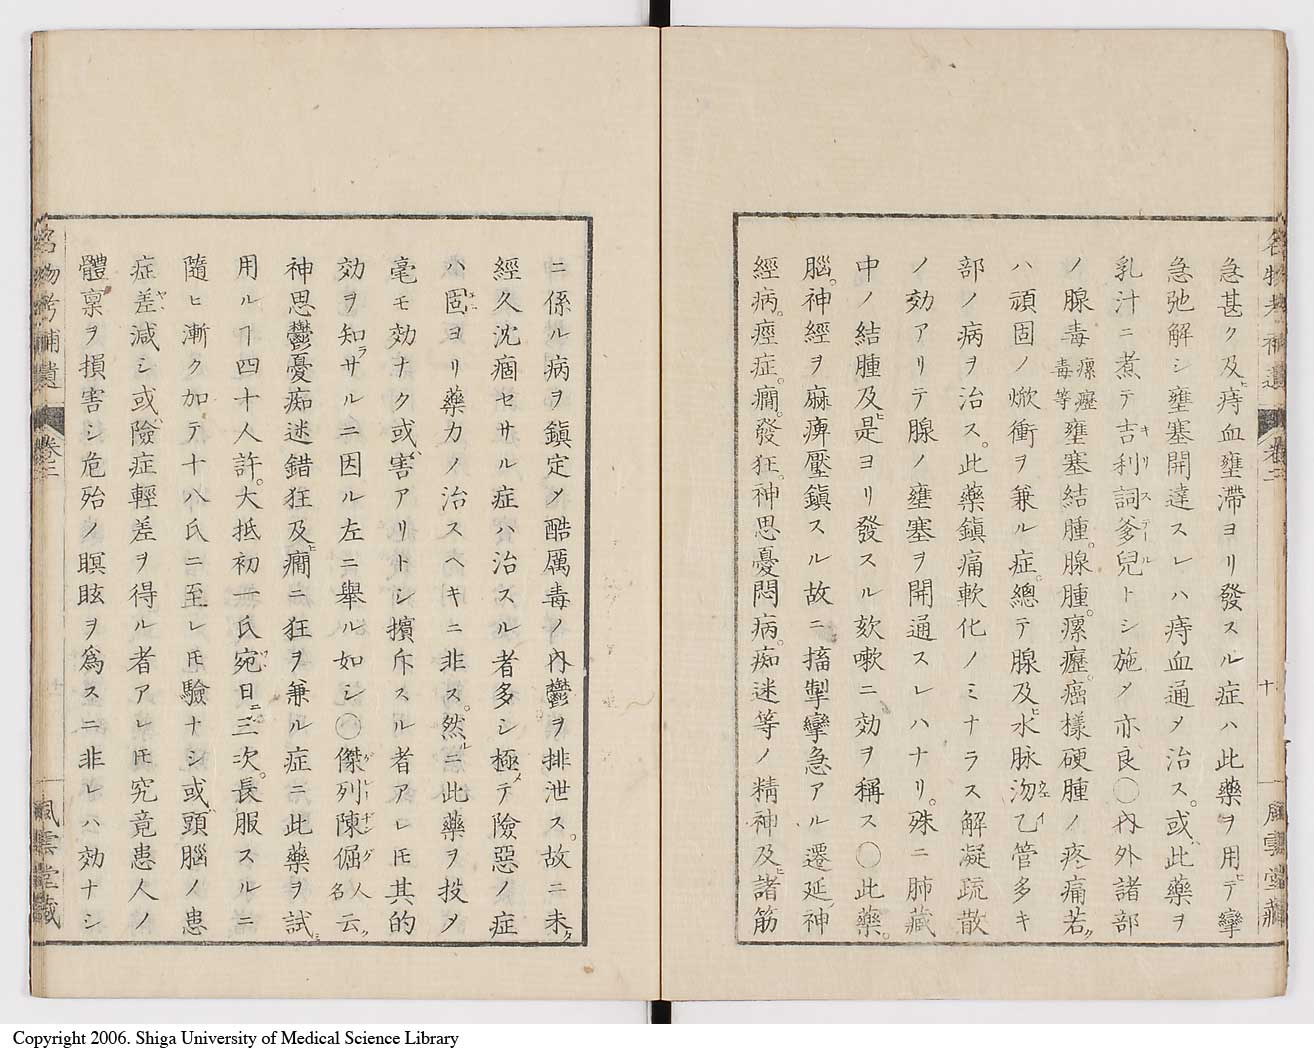 名物考補遺 卷二 十 風雲堂藏
急甚ク及ヒ痔血壅滯ヨリ發スル症ハ此藥ヲ用ヒテ攣
急弛解シ壅塞開達スレハ痔血通メ治ス。或ハ此藥ヲ
乳汁ニ煮テ吉利詞爹兒キリステールトシ施メ亦良〇內外諸部
ノ腺毒瘰癧毒等壅塞結腫。腺腫。瘰癧。癌樣硬腫ノ疼痛若クハ
ハ頑固ノ焮衝ヲ兼ル症。總テ腺及ヒ水脉沕乙管多キ
部ノ病ヲ治ス。此藥鎭痛軟化ノミナラス解凝疏散
ノ効アリテ腺ノ壅塞ヲ開通スレハナリ。殊ニ肺藏
中ノ結腫及ヒ是ヨリ發スル欬嗽ニ効ヲ稱ス〇此藥。
腦。神經ヲ麻痺壓鎭スル故ニ搐掣攣急アル遷延神
經病。痙症。癇。發狂。神思憂悶病。痴迷等ノ精神及ヒ諸筋
ニ係ル病ヲ鎭定メ酷厲毒ノ內鬱ヲ排泄ス。故ニ未タ
經久沈痼セサル症ハ治スル者多シ極メテ險惡ノ症
ハ固ヨリ藥力ノ治スヘキニ非ス。然ルニ此藥ヲ投メ
毫モ効ナク或ハ害アリトシ擯斥スル者アレ𪜈其的
効ヲ知ラサルニ因ル左ニ擧ル如シ〇傑列陳倔グレーヂング人名云ク
神思鬱憂痴迷錯狂及ヒ癇ニ狂ヲ兼ル症ニ此藥ヲ試ミ
用ルヿ四十人許。大抵初一氏宛日ニ三次。長服スルニ
隨ヒ漸ク加テ十八氏ニ至レ𪜈驗ナシ或ハ頭腦ノ患
症差ヤヤ減シ或ハ險症輕差ヲ得ル者アレ𪜈究竟患人ノ
體稟ヲ損害シ危殆ノ瞑眩ヲ爲スニ非レハ効ナシ
名物考補遺 卷二 風雲堂藏
Copyright 2006. Shiga University of Medical Science Library